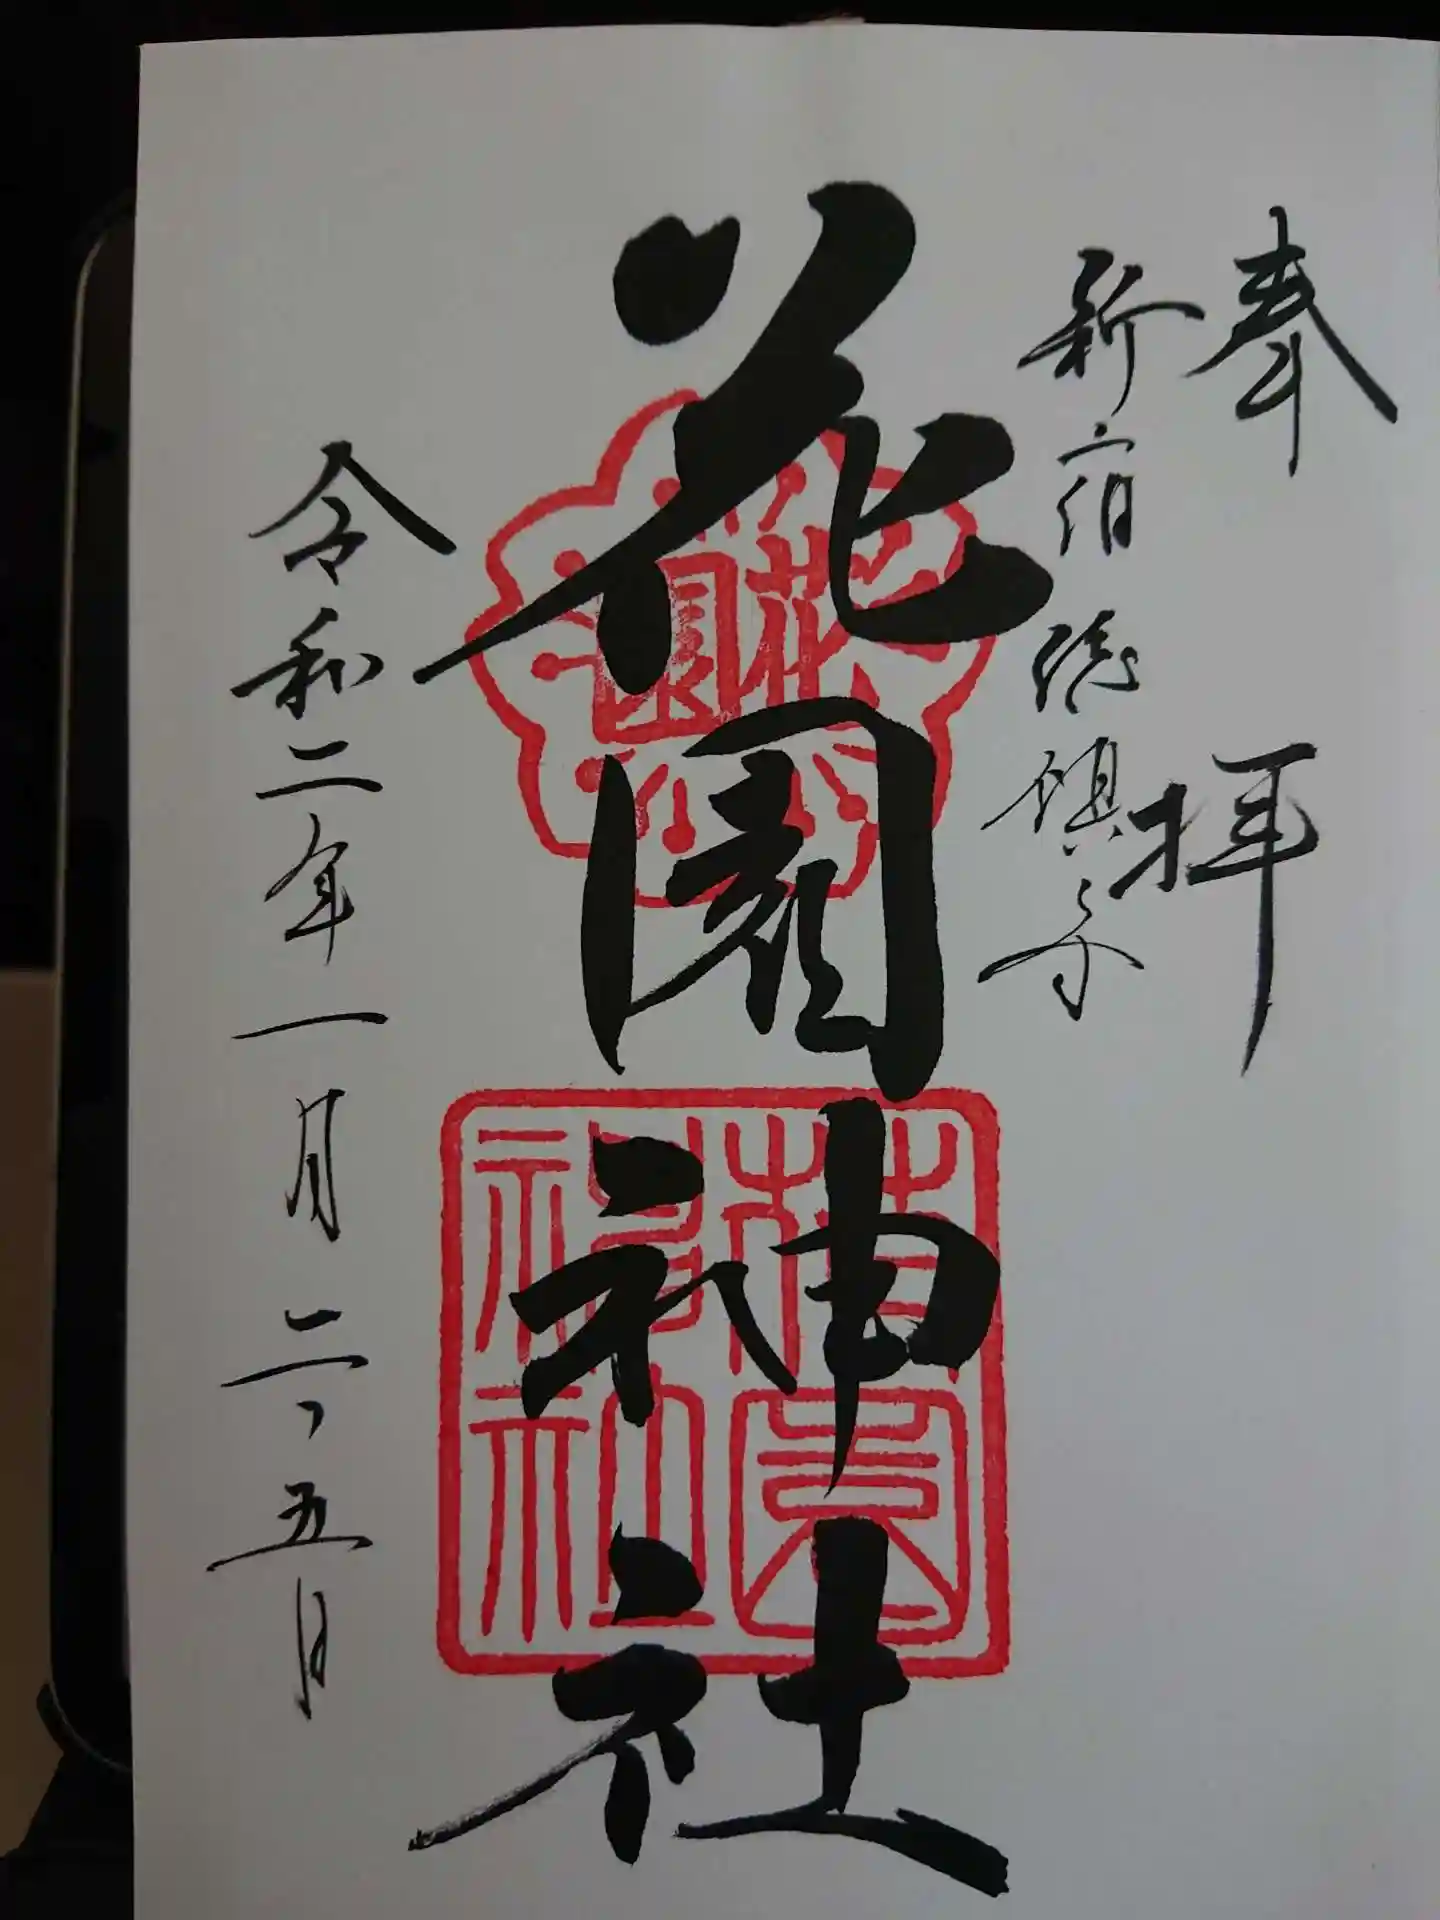 奉拝
新宿総鎮守
花園神社
令和二年一月二十五日
花園
花園神社